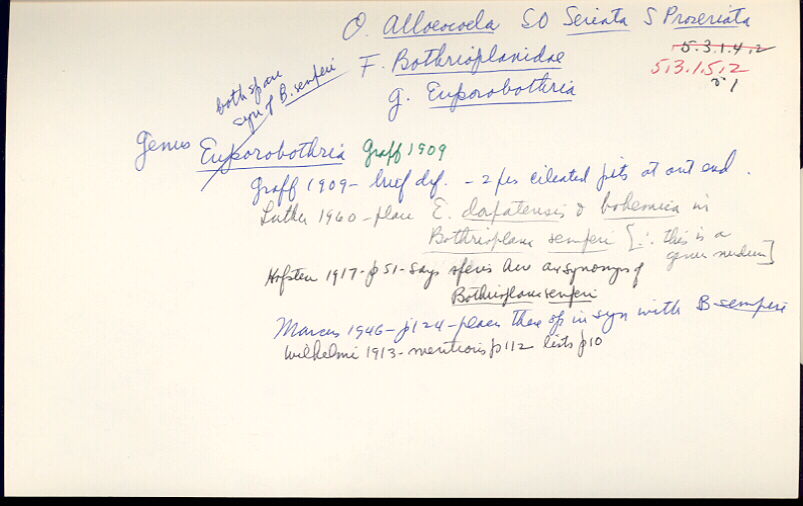 O. Alloeocoela SO Seriata S Proseriata
5.3.1.4.2
F. Bothrioplanidae
5.3.1.5.2
g. Euporobothria
both spp are
syn of B. semperi
Genus Euporobothria Graff 1909
Graff 1909 - brief def. - 2 prs ciliated pits at ant end.
Luther 1960 - place E. dorpatensis & bohemica in
Bothrioplana semperi [∴ this is a
genus nudum]
Hofsten 1917 - p 51 - says species here are synonyms of
Bothrioplana semperi
Marcus 1946 - p 124 - places these sp in syn with B semperi
Wilhelmi 1913 - mentions p 112 lists p 10